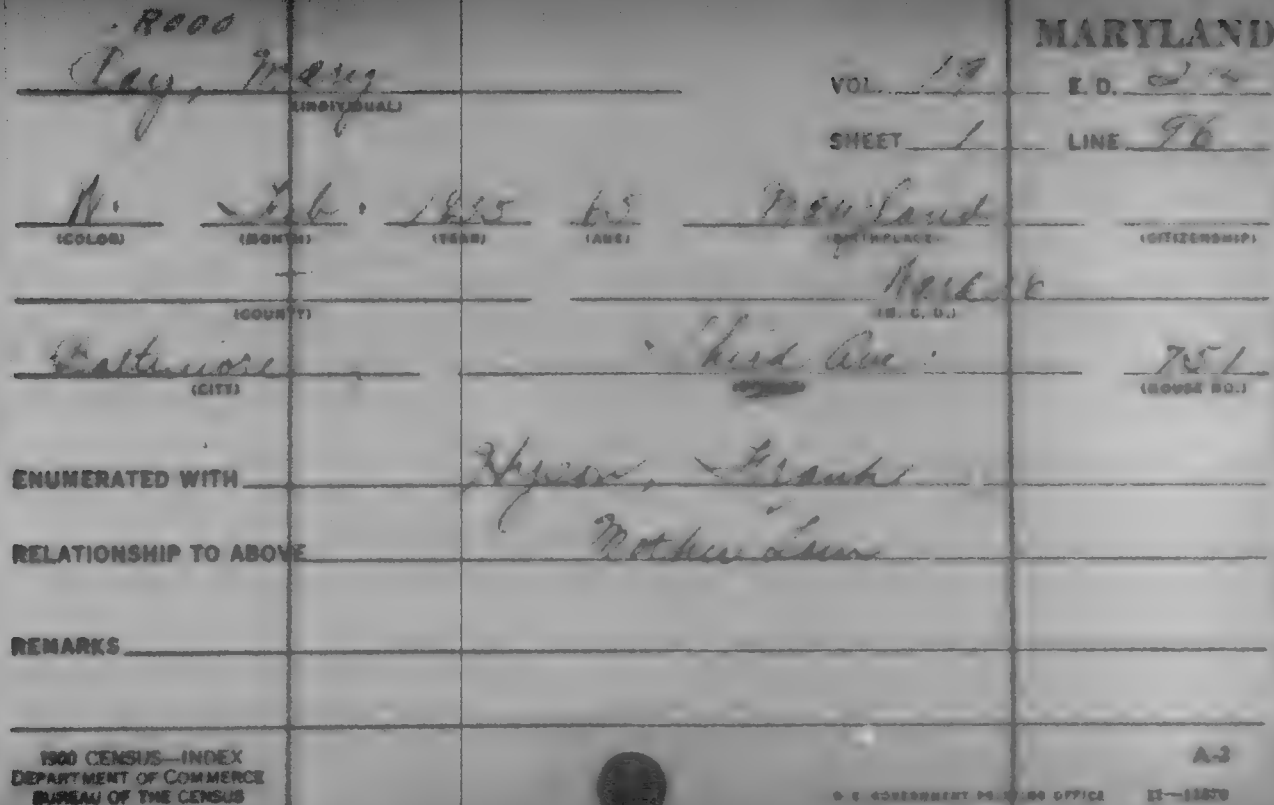 R000
MARYLAND
Ray, Mary
(INDIVIDUAL)
VOL. 19 E. D.
SHEET 1 LINE 96
Feb. 65 Maryland
(COLOR) (MONTH) (YEAR) (AGE) (BIRTHPLACE) (CITIZENSHIP)
(COUNTY) (M. C. D.)
Baltimore Third Ave. 751
(CITY) (HOUSE NO.)
ENUMERATED WITH Frank
RELATIONSHIP TO ABOVE Mother Law
REMARKS
1900 CENSUS—INDEX
DEPARTMENT OF COMMERCE
BUREAU OF THE CENSUS
A-3
U. S. GOVERNMENT PRINTING OFFICE